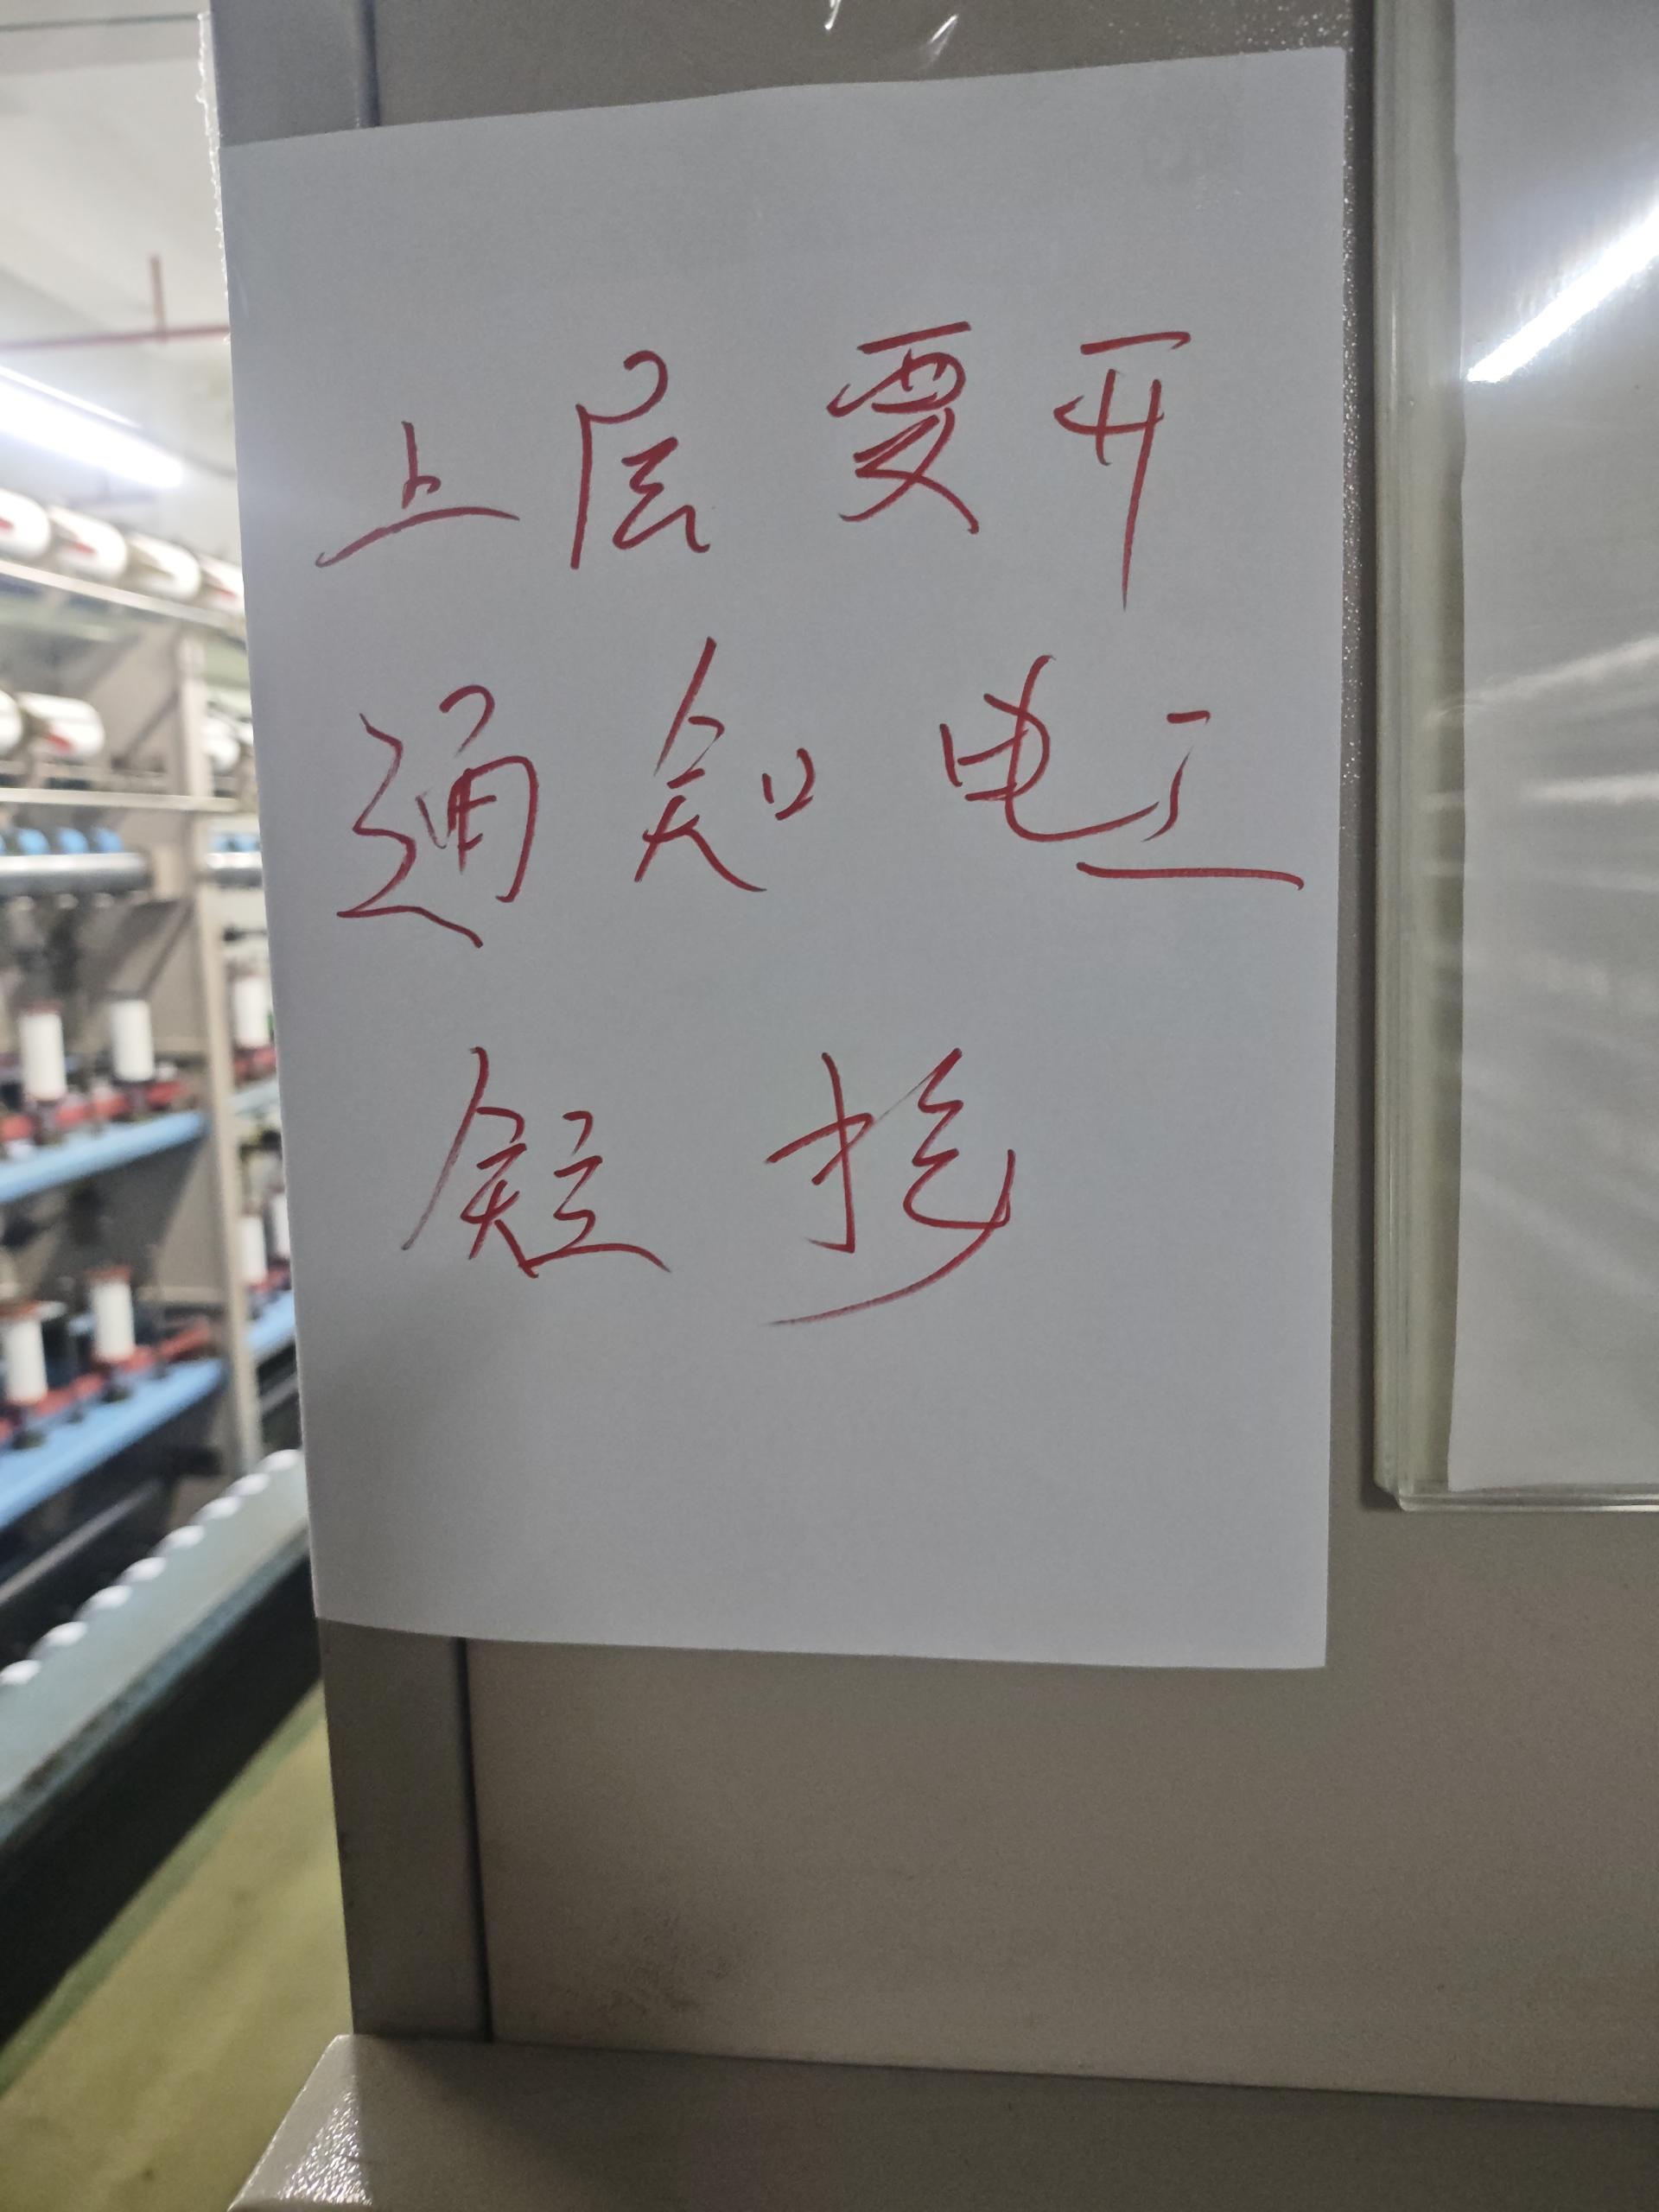 上层要开
通知电工